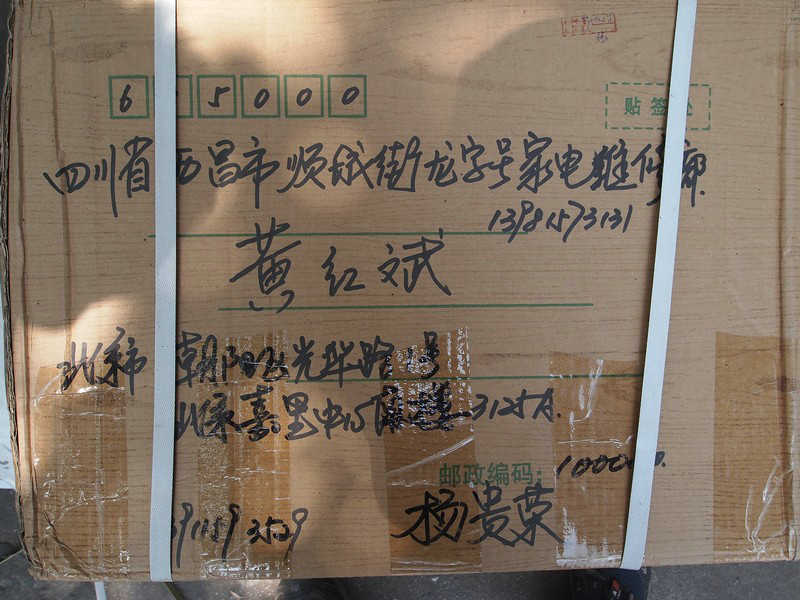 6 5000
贴签处
四川省西昌市顺城街龙字号家电维修部
13981573131
黄红斌
北京市朝阳区光华路1号
北京嘉里中心 3125A.
邮政编码: 1000
3911593529
杨贵荣